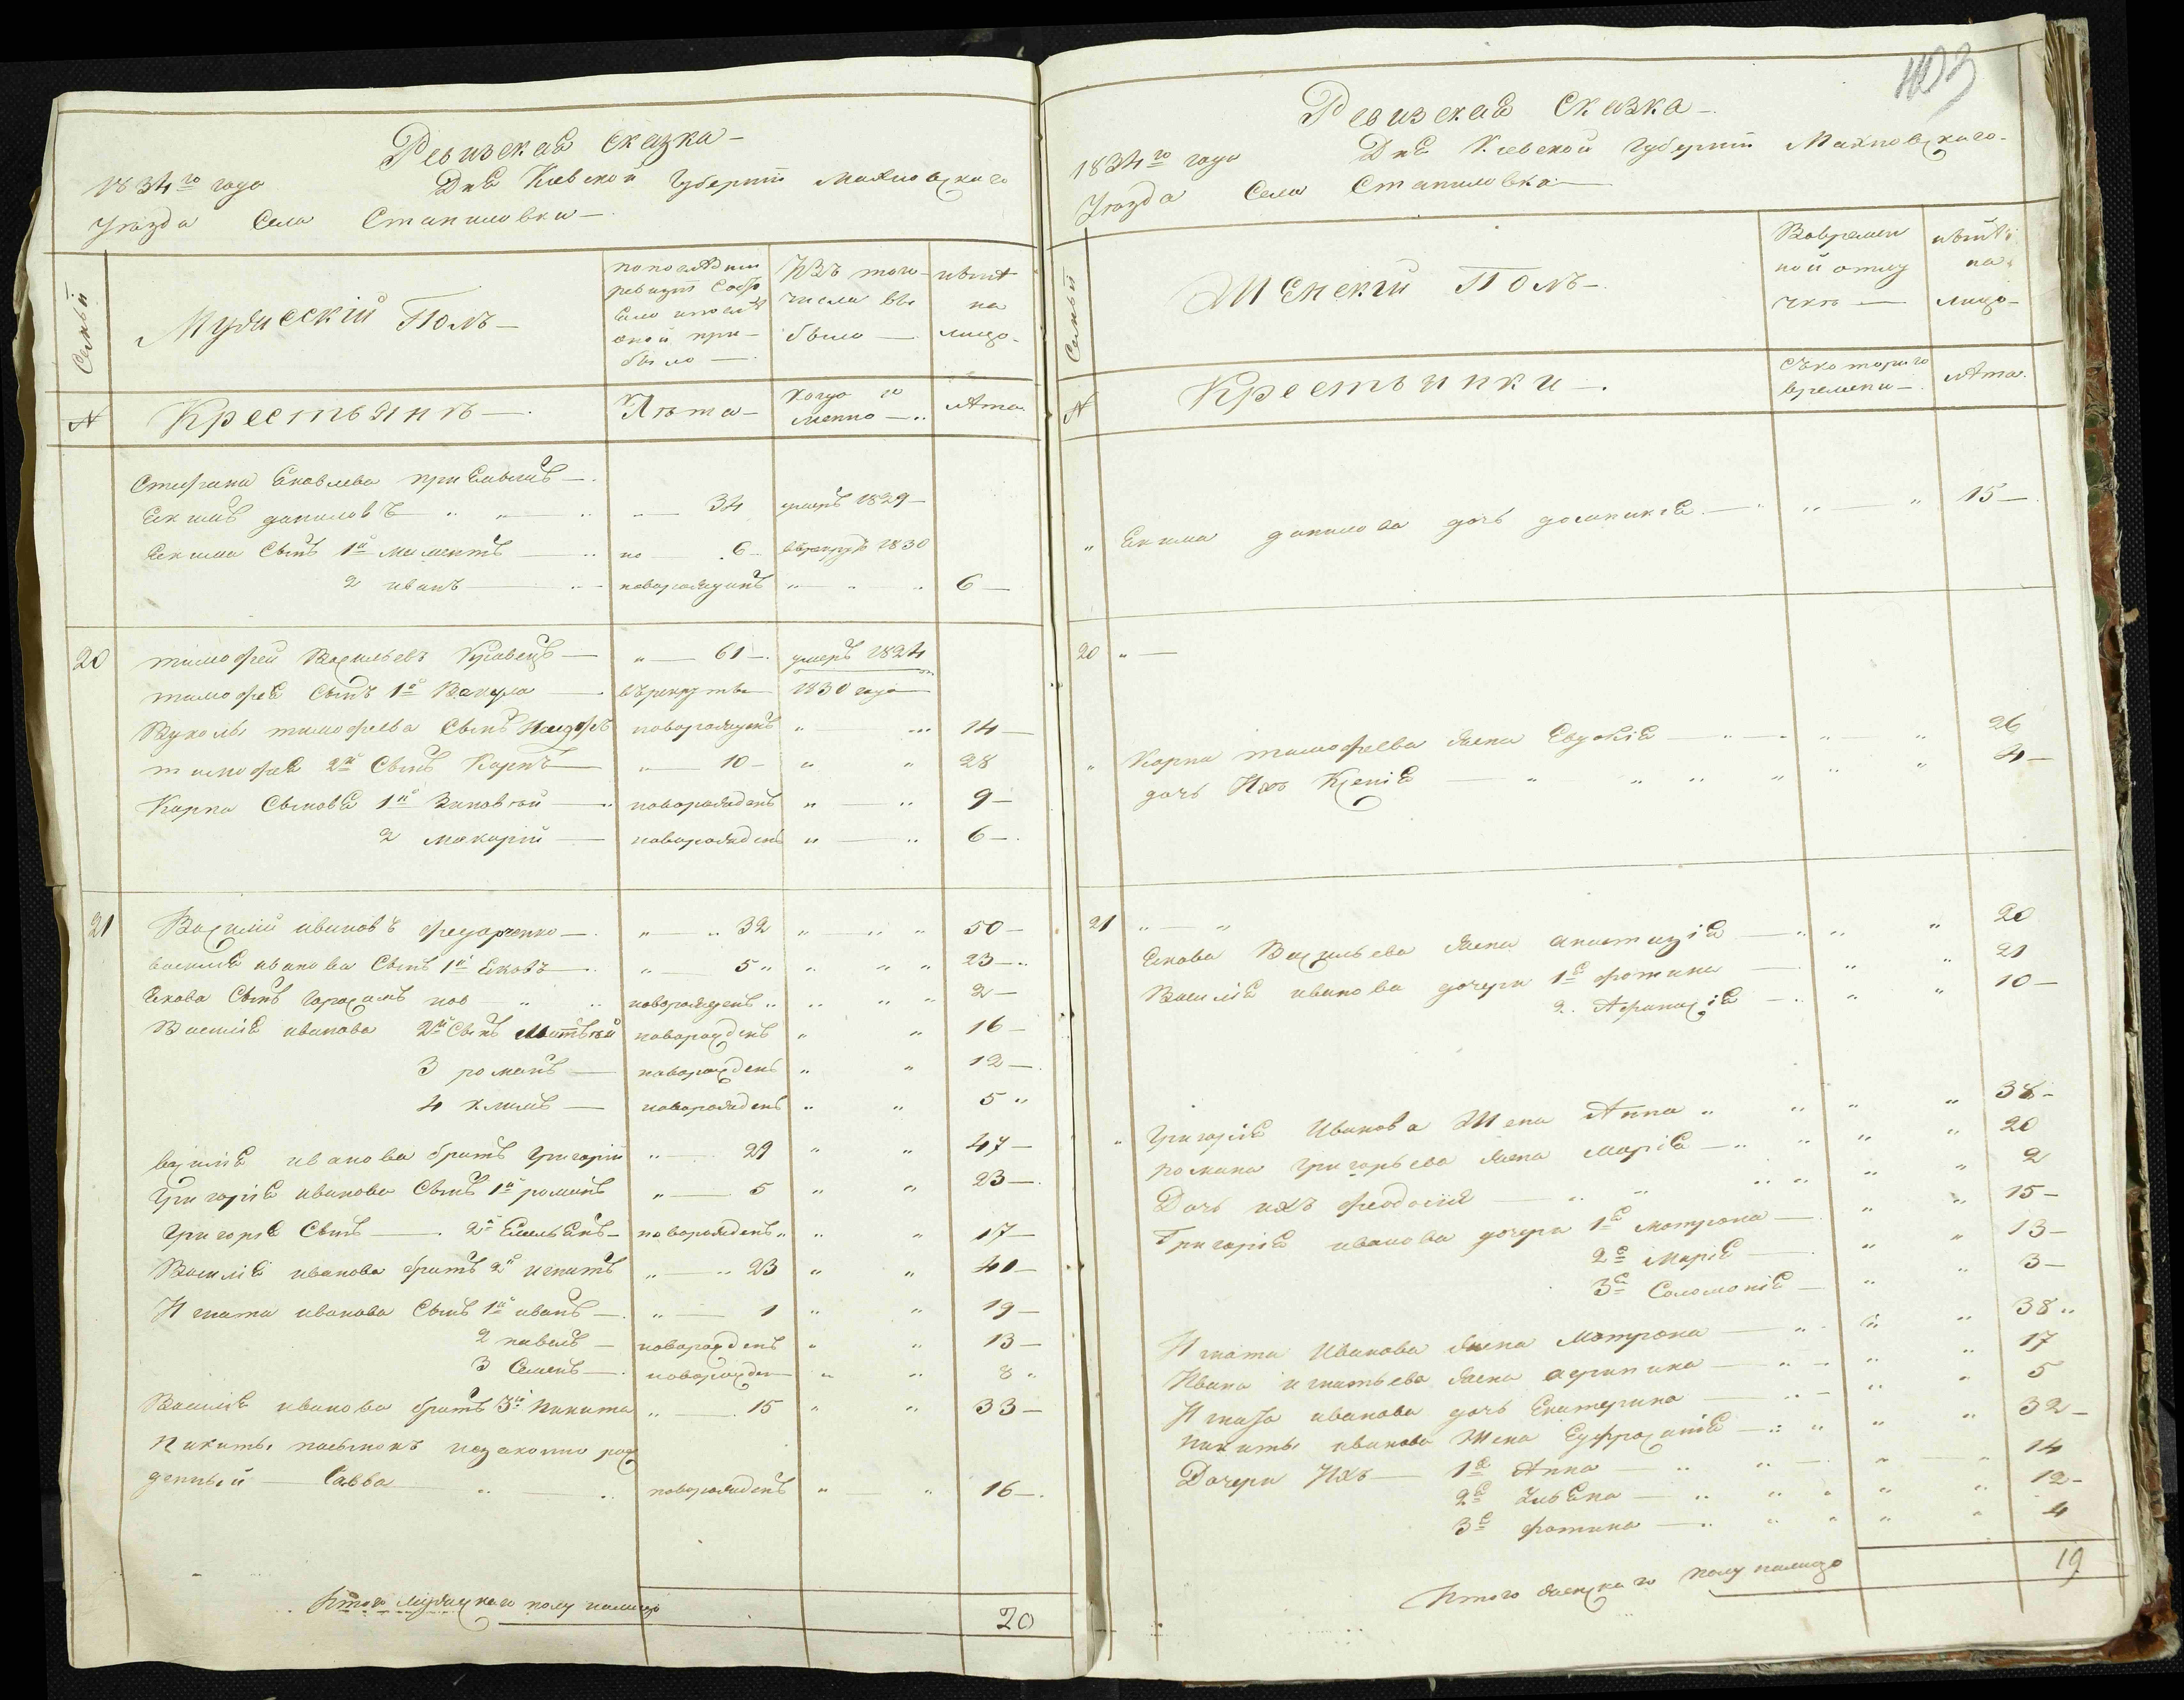 Ревизская сказка
1834го года Дня Киевской Губернии Махновскаго
Уезда Села Станиловки
Семьи
Мужескій Полъ
по последней ревизіи состояло и после оной прибыло
Изъ того числа выбыло
ныне на лицо
№
Крестьянъ
Лѣта
Когда именно
лѣта
Стефана Яковлева
Яким даниловъ 34 умеръ 1829
Якима Сынъ 1й 6 1830
2 иванъ новорожденъ 6
20 тимофей Васильевъ Кравецъ 61 умеръ 1824
тимофея Сынъ 1й Вакула въ рекруты 1830 года
Вуколы тимофеева Сынъ новорожденъ 14
тимофея 2й Сынъ Карпъ 10 28
Карпа Сыновя 1й Зиновій новорожденъ 9
2 макарій новорожденъ 6
21 Василій ивановъ федорченко 32 50
василія иванова Сынъ 1й Яковъ 5 23
Якова Сынъ Герасимъ новорожденъ 2
Василія иванова 2й Сынъ Матвѣй новорожденъ 16
3 романъ новорожденъ 12
4 климъ новорожденъ 5
василія иванова братъ Григорій 29 47
Григорія иванова Сынъ 1й романъ 5 23
Григорія Сынъ 2й Емельянъ новорожденъ 17
Василія иванова братъ 2й игнатъ 23 41
Игната иванова Сынъ 1й иванъ 1 19
2 павелъ новорожденъ 13
3 Семенъ новорожден 8
Василія иванова братъ 3й Никита 15 33
Никиты пасынокъ незаконно рож
денный Савва новорожденъ 16
Итого мужескаго полу налицо 20
103
Ревизская Сказка
1834го года Дня Киевской Губерніи Махновскаго
Уезда Села Станиловка
Семьи
Женскій Полъ
Во временной отлучке
ныне на лицо
№
Крестьянки
Съ котораго времени
лѣта
Якима данилова дочь доминикія 15
20
Карпа тимофеева жена Евдокія 26
дочь Ихъ Ксенія 4
21
Якова Васильева жена анастазія 20
Василія иванова дочери 1я фотина 21
2. Афанасія 10
Григорія Иванова Жена Анна 38
романа григорьева жена Марія 20
Дочь ихъ феодосія 2
Григорія иванова дочери 1я мотрона 15
2я Марія 13
3я Соломонія 3
Игната Иванова жена Мотрона 38
Ивана игнатьева жена агрипина 17
Игната иванова дочь Екатерина 5
никиты иванова Жена Ефросинія 32
Дочери Ихъ 1я Анна 14
2я Ульяна 12
3я фотина 4
Итого женскаго полу налицо 19